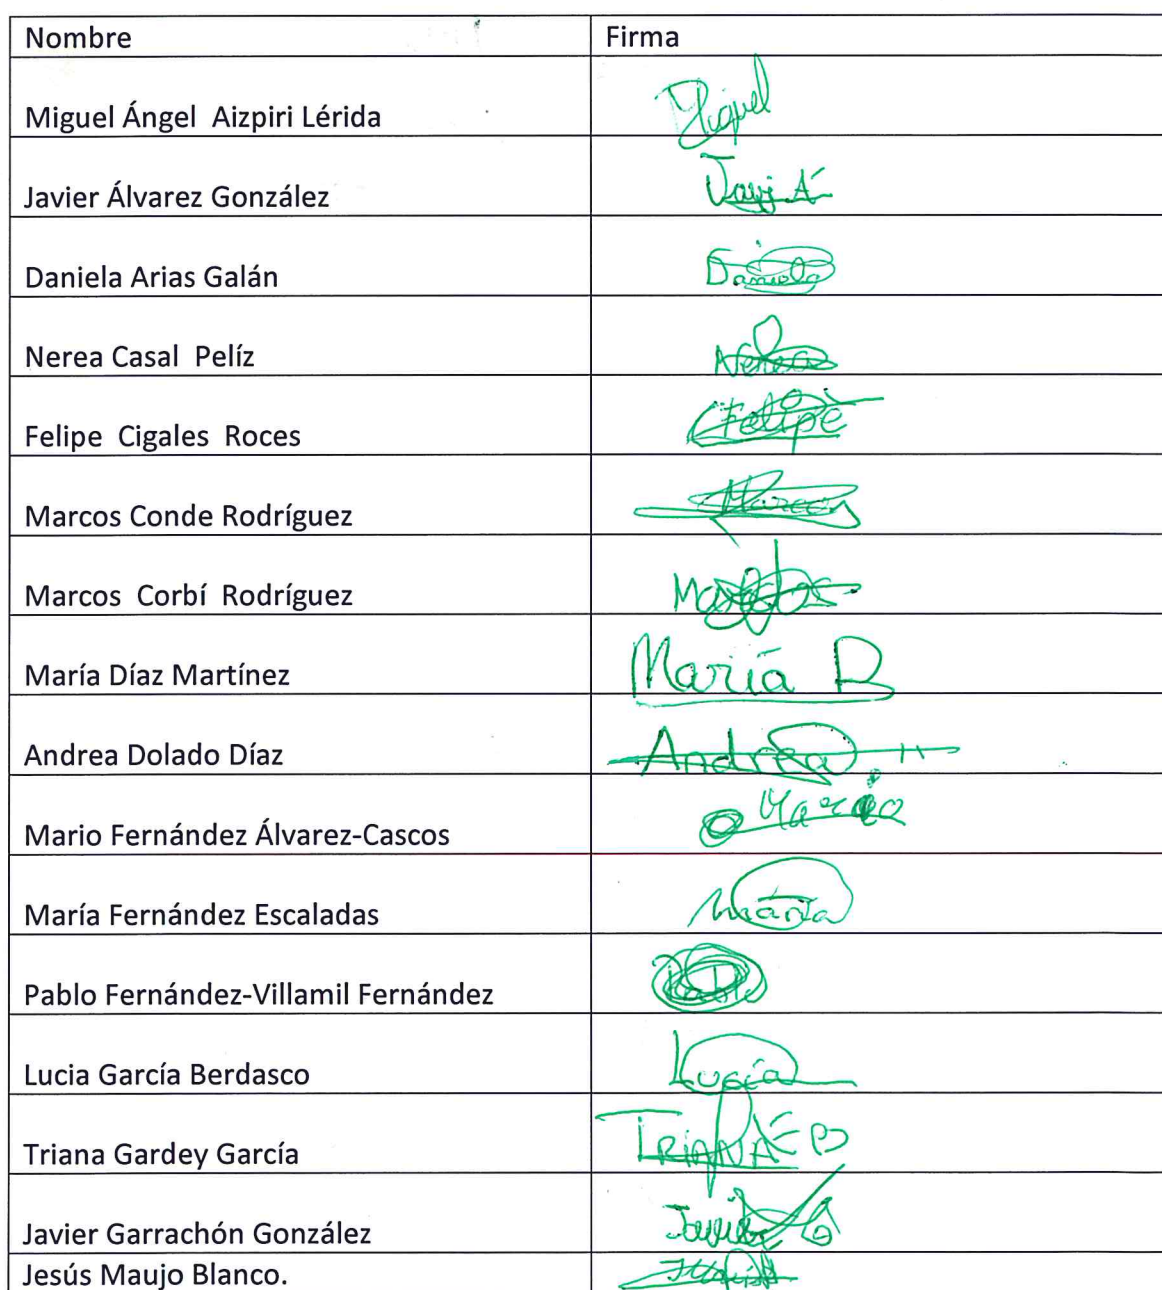 Nombre Firma
Miguel Ángel Aizpiri Lérida Miguel
Javier Álvarez González Javi Á
Daniela Arias Galán Daniela
Nerea Casal Pelíz Nerea
Felipe Cigales Roces Felipe
Marcos Conde Rodríguez Marcos
Marcos Corbí Rodríguez Marcos
María Díaz Martínez María D
Andrea Dolado Díaz Andrea
Mario Fernández Álvarez-Cascos Mario
María Fernández Escaladas María
Pablo Fernández-Villamil Fernández Pablo
Lucia García Berdasco Lucía
Triana Gardey García TRIANA
Javier Garrachón González Javier G
Jesús Maujo Blanco.